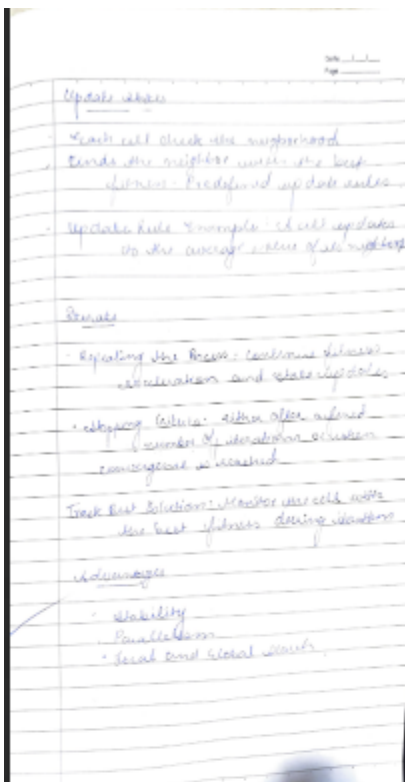 Date __/__/__
Page ______
Update states
· each cell check the neigborhood
· Finds the neighbor with the best
fitness - Predefined update rules
· Update Rule Example: A cell updates
to the average value of its neighbors
Iterate
· Repeating the Process: Continue fitness
evaluation and state updates
· Stopping Criteria: either after a fixed
number of iterations or when
convergence is reached
Track Best Solution: Monitor the cells with
the best fitness during iteration
Advantages
·
· Parallelism
· Local and Global search